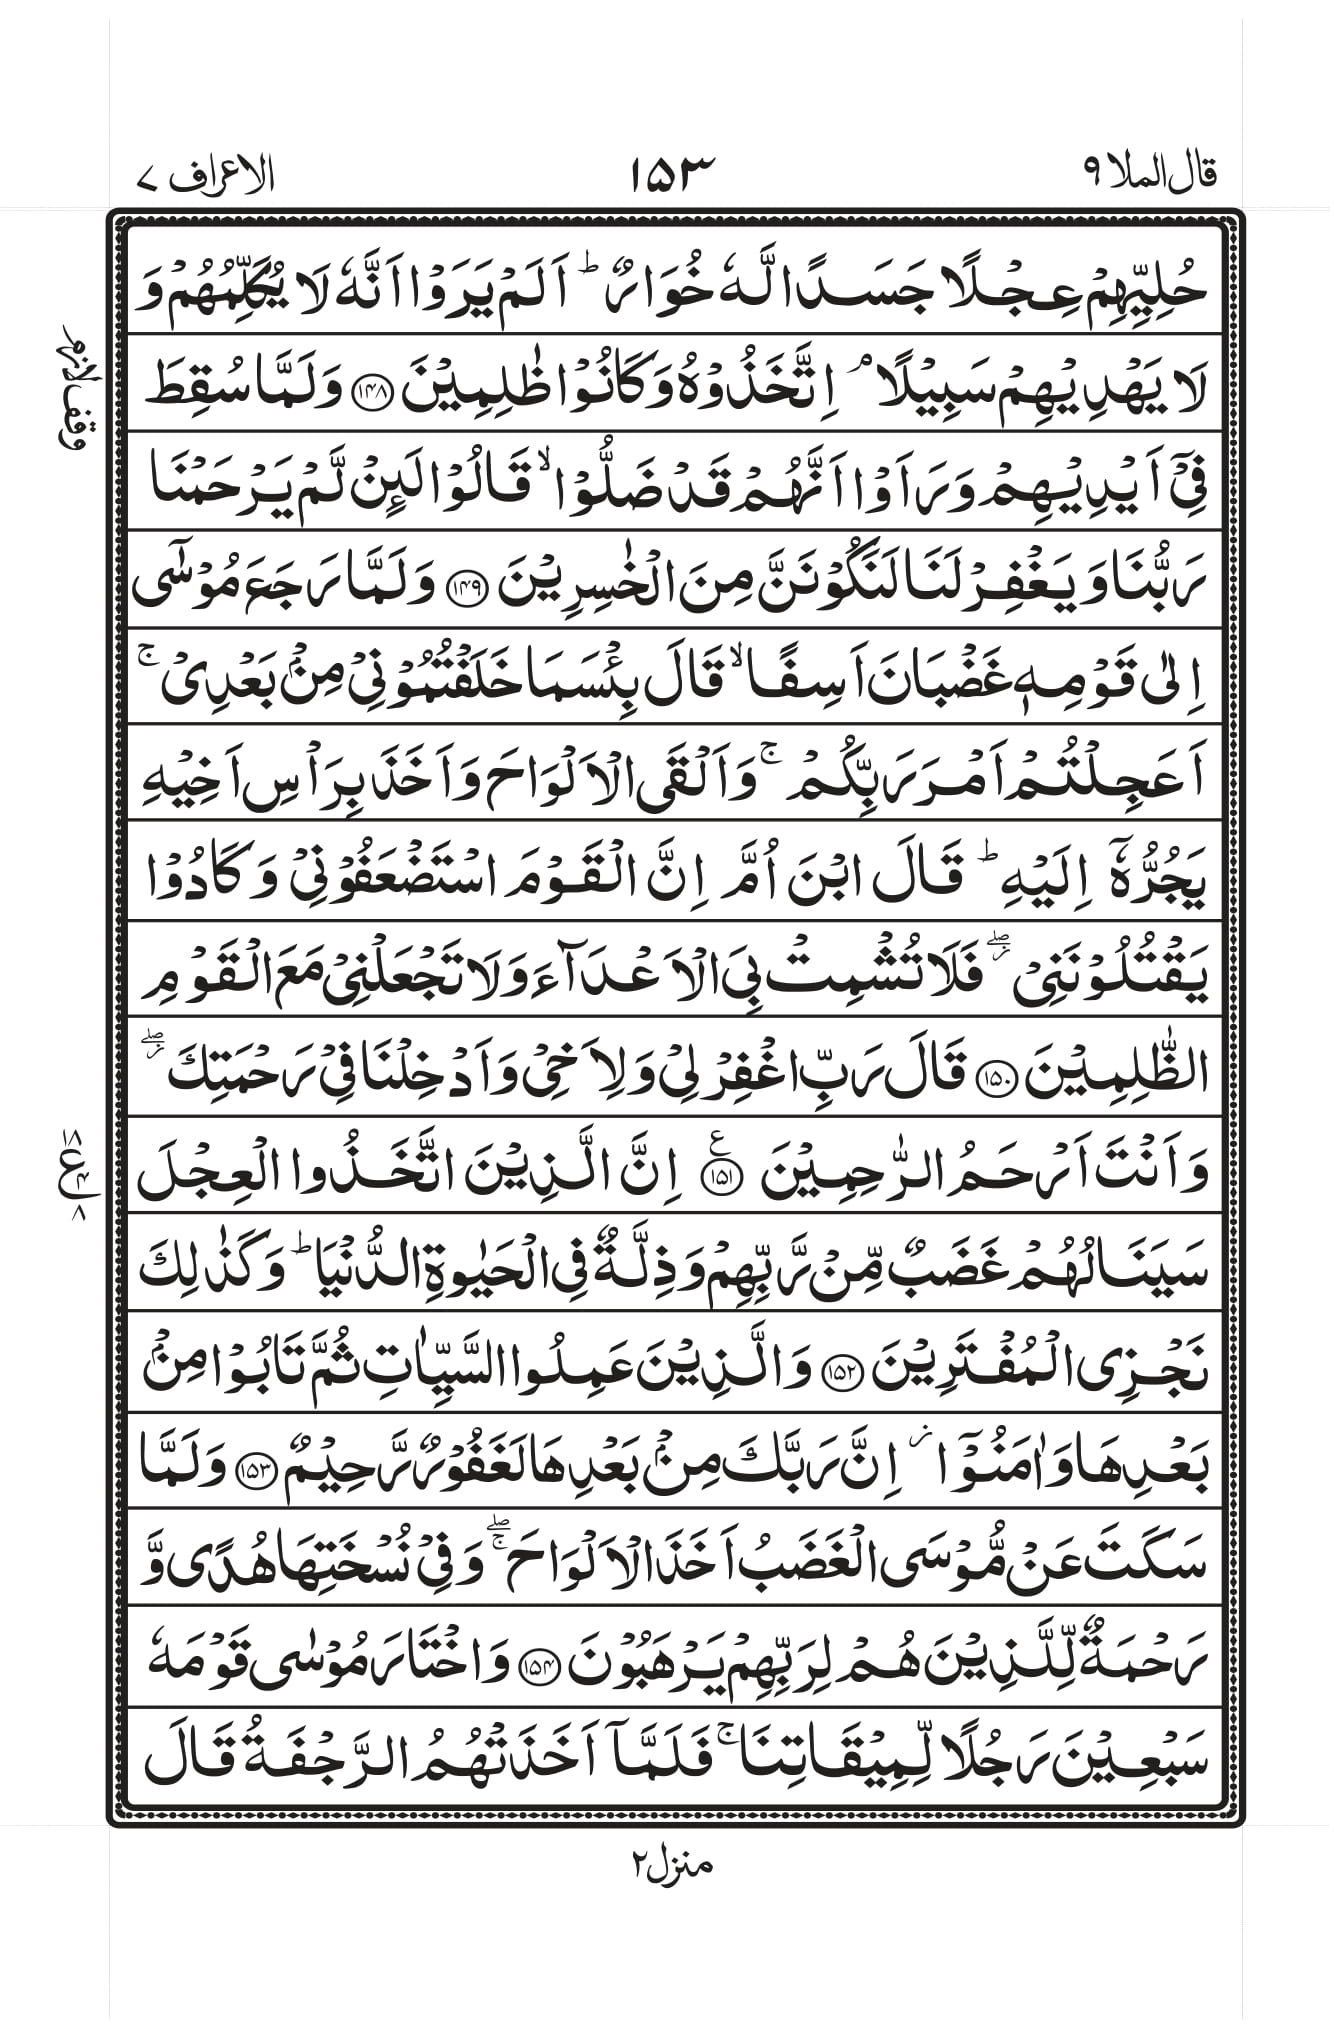 قال الملا ٩
١٥٣
الاعراف ٧
حُلِيِّهِمْ عِجْلًا جَسَدًا لَّهٗ خُوَارٌ ؕ اَلَمْ يَرَوْا اَنَّهٗ لَا يُكَلِّمُهُمْ وَ
لَا يَهْدِيْهِمْ سَبِيْلًا ۘ اِتَّخَذُوْهُ وَكَانُوْا ظٰلِمِيْنَ ﴿۱۴۸﴾ وَلَمَّا سُقِطَ
وقف لازم
فِيْۤ اَيْدِيْهِمْ وَرَاَوْا اَنَّهُمْ قَدْ ضَلُّوْا ۙ قَالُوْا لَىِٕنْ لَّمْ يَرْحَمْنَا
رَبُّنَا وَيَغْفِرْ لَنَا لَنَكُوْنَنَّ مِنَ الْخٰسِرِيْنَ ﴿۱۴۹﴾ وَلَمَّا رَجَعَ مُوْسٰۤى
اِلٰى قَوْمِهٖ غَضْبَانَ اَسِفًا ۙ قَالَ بِئْسَمَا خَلَفْتُمُوْنِيْ مِنْۢ بَعْدِيْ ۚ
اَعَجِلْتُمْ اَمْرَ رَبِّكُمْ ۚ وَاَلْقَى الْاَلْوَاحَ وَاَخَذَ بِرَاْسِ اَخِيْهِ
يَجُرُّهٗۤ اِلَيْهِ ؕ قَالَ ابْنَ اُمَّ اِنَّ الْقَوْمَ اسْتَضْعَفُوْنِيْ وَكَادُوْا
يَقْتُلُوْنَنِيْ ۖؗ فَلَا تُشْمِتْ بِيَ الْاَعْدَآءَ وَلَا تَجْعَلْنِيْ مَعَ الْقَوْمِ
الظّٰلِمِيْنَ ﴿۱۵۰﴾ قَالَ رَبِّ اغْفِرْ لِيْ وَلِاَخِيْ وَاَدْخِلْنَا فِيْ رَحْمَتِكَ ۖؗ
وَاَنْتَ اَرْحَمُ الرّٰحِمِيْنَ ﴿۱۵۱﴾ ع اِنَّ الَّذِيْنَ اتَّخَذُوا الْعِجْلَ
۱۸ ع ۴ ۸
سَيَنَالُهُمْ غَضَبٌ مِّنْ رَّبِّهِمْ وَذِلَّةٌ فِي الْحَيٰوةِ الدُّنْيَا ؕ وَكَذٰلِكَ
نَجْزِي الْمُفْتَرِيْنَ ﴿۱۵۲﴾ وَالَّذِيْنَ عَمِلُوا السَّيِّاٰتِ ثُمَّ تَابُوْا مِنْۢ
بَعْدِهَا وَاٰمَنُوْۤا ؗ اِنَّ رَبَّكَ مِنْۢ بَعْدِهَا لَغَفُوْرٌ رَّحِيْمٌ ﴿۱۵۳﴾ وَلَمَّا
سَكَتَ عَنْ مُّوْسَى الْغَضَبُ اَخَذَ الْاَلْوَاحَ ۖۚ وَفِيْ نُسْخَتِهَا هُدًى وَّ
رَحْمَةٌ لِّلَّذِيْنَ هُمْ لِرَبِّهِمْ يَرْهَبُوْنَ ﴿۱۵۴﴾ وَاخْتَارَ مُوْسٰى قَوْمَهٗ
سَبْعِيْنَ رَجُلًا لِّمِيْقَاتِنَا ۚ فَلَمَّاۤ اَخَذَتْهُمُ الرَّجْفَةُ قَالَ
منزل ٢